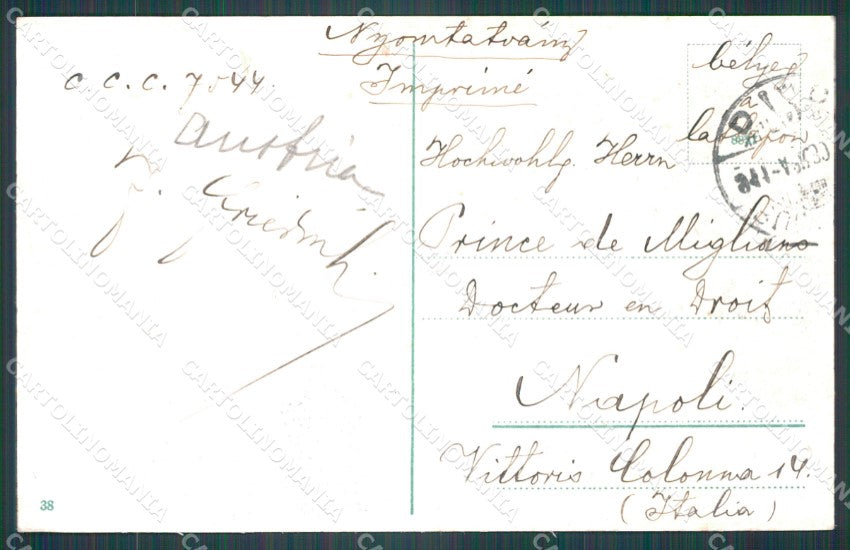 Nyomtatvány
Imprimé
C. C. C. 7544
Austria
J. Griedrich.
bélyeg
a
lapon
Hochwohlg. Herrn
Prince de Migliano
Docteur en Droit
Napoli.
Vittoris Colonna 14.
(Italia)
38
CARTOLINOMANIA